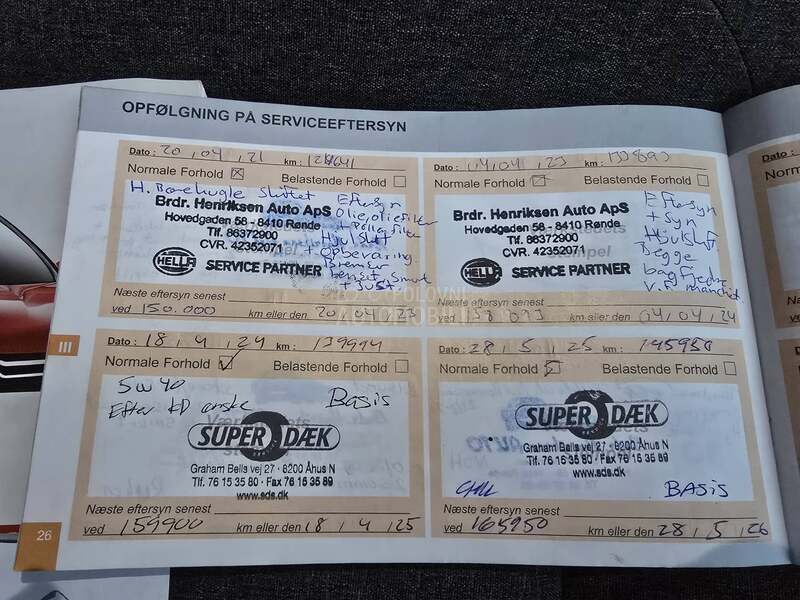 OPFØLGNING PÅ SERVICEEFTERSYN
Dato : 20 , 04 , 21 km :
Normale Forhold ☒ Belastende Forhold ☐
H. Bærekugle skiftet
Eftersyn
Olie, oliefilter
+ Pollenfilter
Hjulskift
+ opbevaring
Bremser
renset, smurt
+ Just.
Brdr. Henriksen Auto ApS
Hovedgaden 58 - 8410 Rønde
Tlf. 86372900
CVR. 42352071
HELLA SERVICE PARTNER
Næste eftersyn senest
ved 150.000 km eller den 20 , 04 , 23
Dato : 04 , 04 , 23 km : 133893
Normale Forhold Belastende Forhold ☐
Eftersyn
+ syn
Hjulskift
Begge
bagfjedre
Brdr. Henriksen Auto ApS
Hovedgaden 58 - 8410 Rønde
Tlf. 86372900
CVR. 42352071
HELLA SERVICE PARTNER
Næste eftersyn senest
ved km eller den 04 , 04 , 24
POLOVNI
AUTOMOBILI
III
Dato : 18 , 4 , 24 km : 139914
Normale Forhold ☑ Belastende Forhold ☐
5W40
Efter KD ønske Basis
SUPER DÆK
Graham Bells vej 27 - 8200 Århus N
Tlf. 76 15 35 80 - Fax 76 15 35 89
www.sds.dk
Næste eftersyn senest
ved 159900 km eller den 18 , 4 , 25
Dato : 28 , 5 , 25 km : 145950
Normale Forhold ☑ Belastende Forhold ☐
SUPER DÆK
Graham Bells vej 27 - 8200 Århus N
Tlf. 76 15 35 80 - Fax 76 15 35 89
www.sds.dk
BASIS
Næste eftersyn senest
ved 165950 km eller den 28 , 5 , 26
26